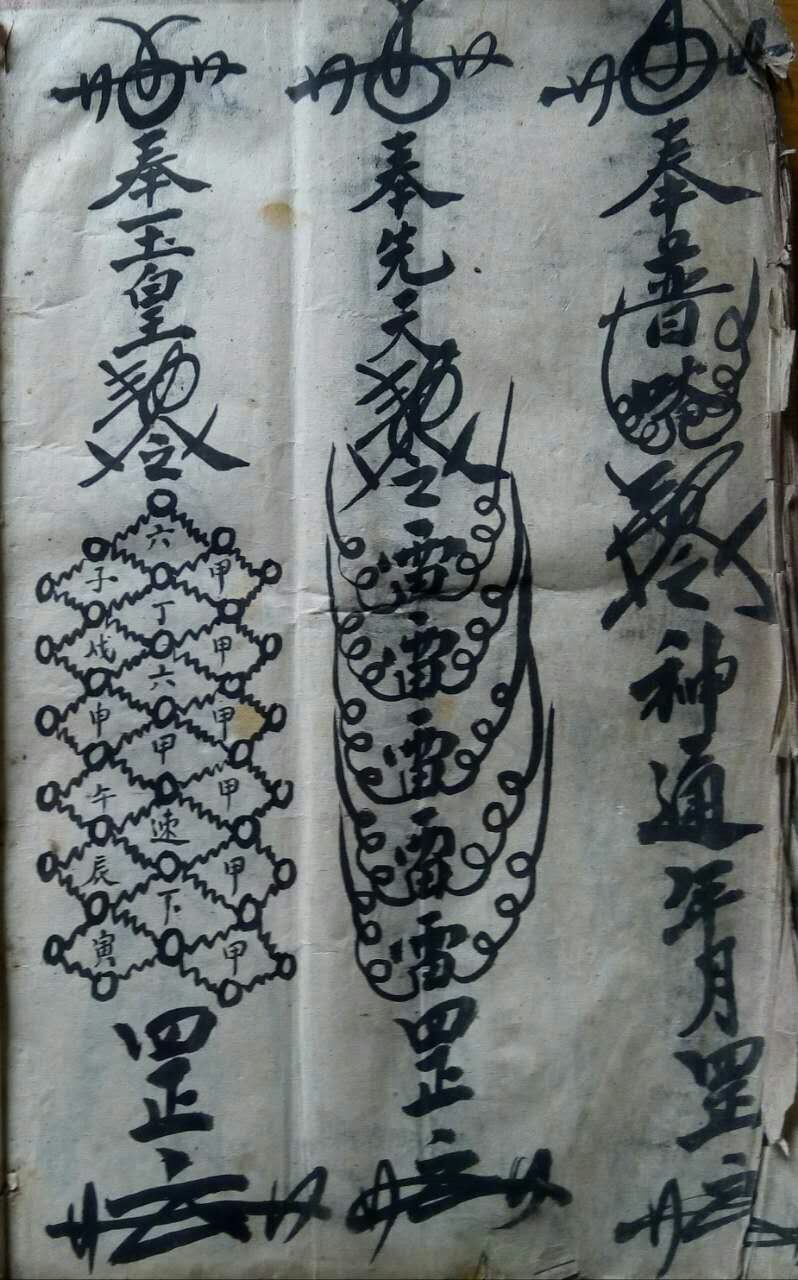 奉普唵勅令神通年月罡
奉先天勅令雷雷雷雷雷罡
奉玉皇勅令
甲甲甲甲甲甲
六丁六甲速下
子戌申午辰寅
罡